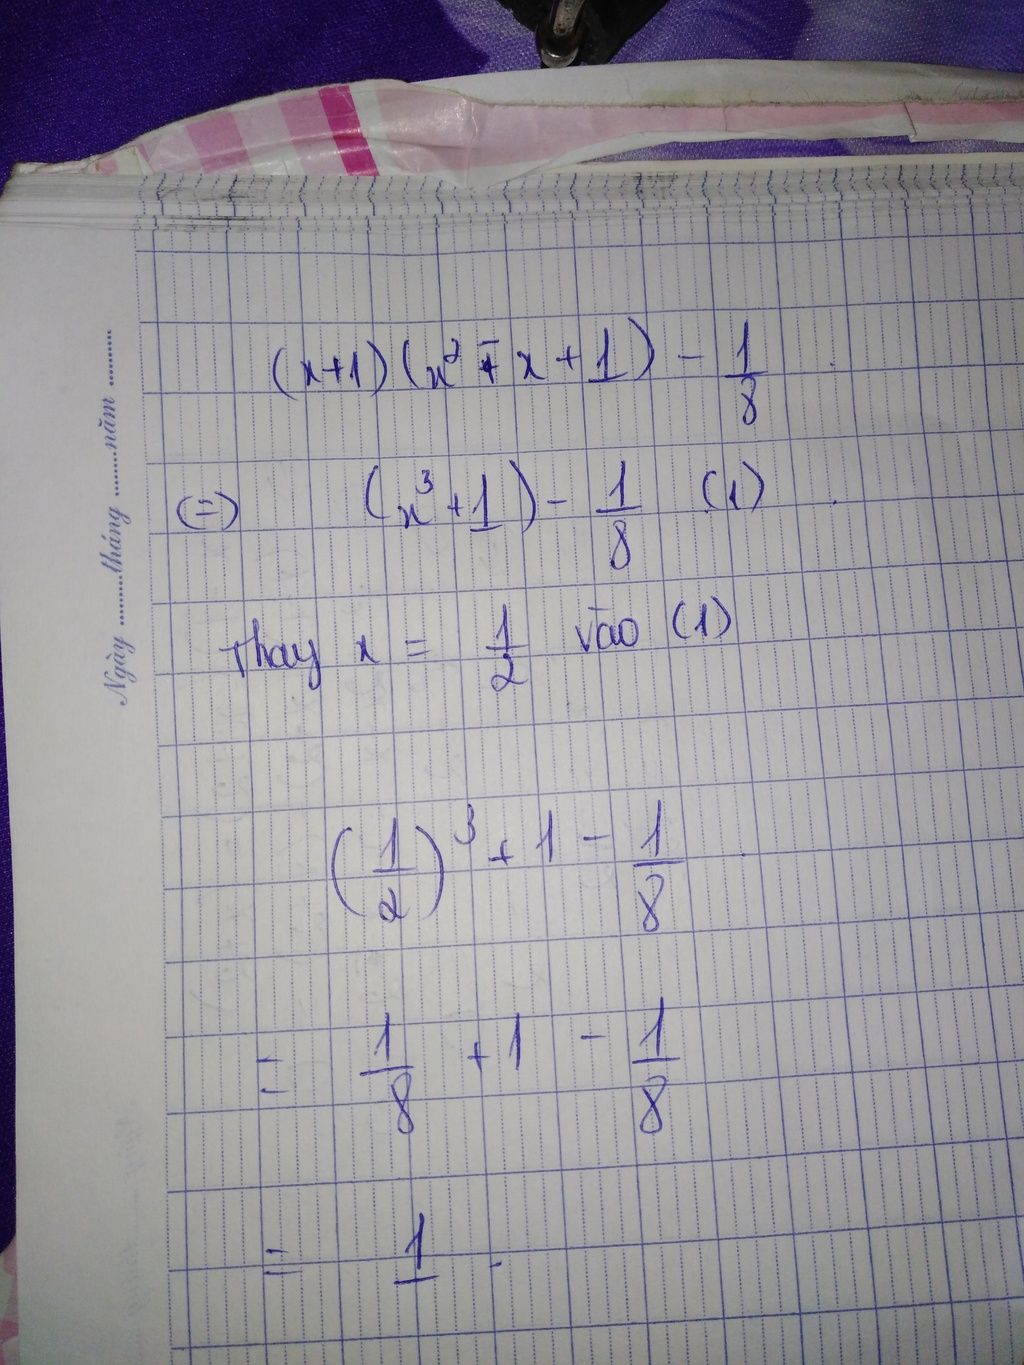 Ngày ........tháng ........năm ........
(x+1)(x² - x + 1) - 1/8
(=) (x³ + 1) - 1/8 (1)
Thay x = 1/2 vào (1)
(1/2)³ + 1 - 1/8
= 1/8 + 1 - 1/8
= 1